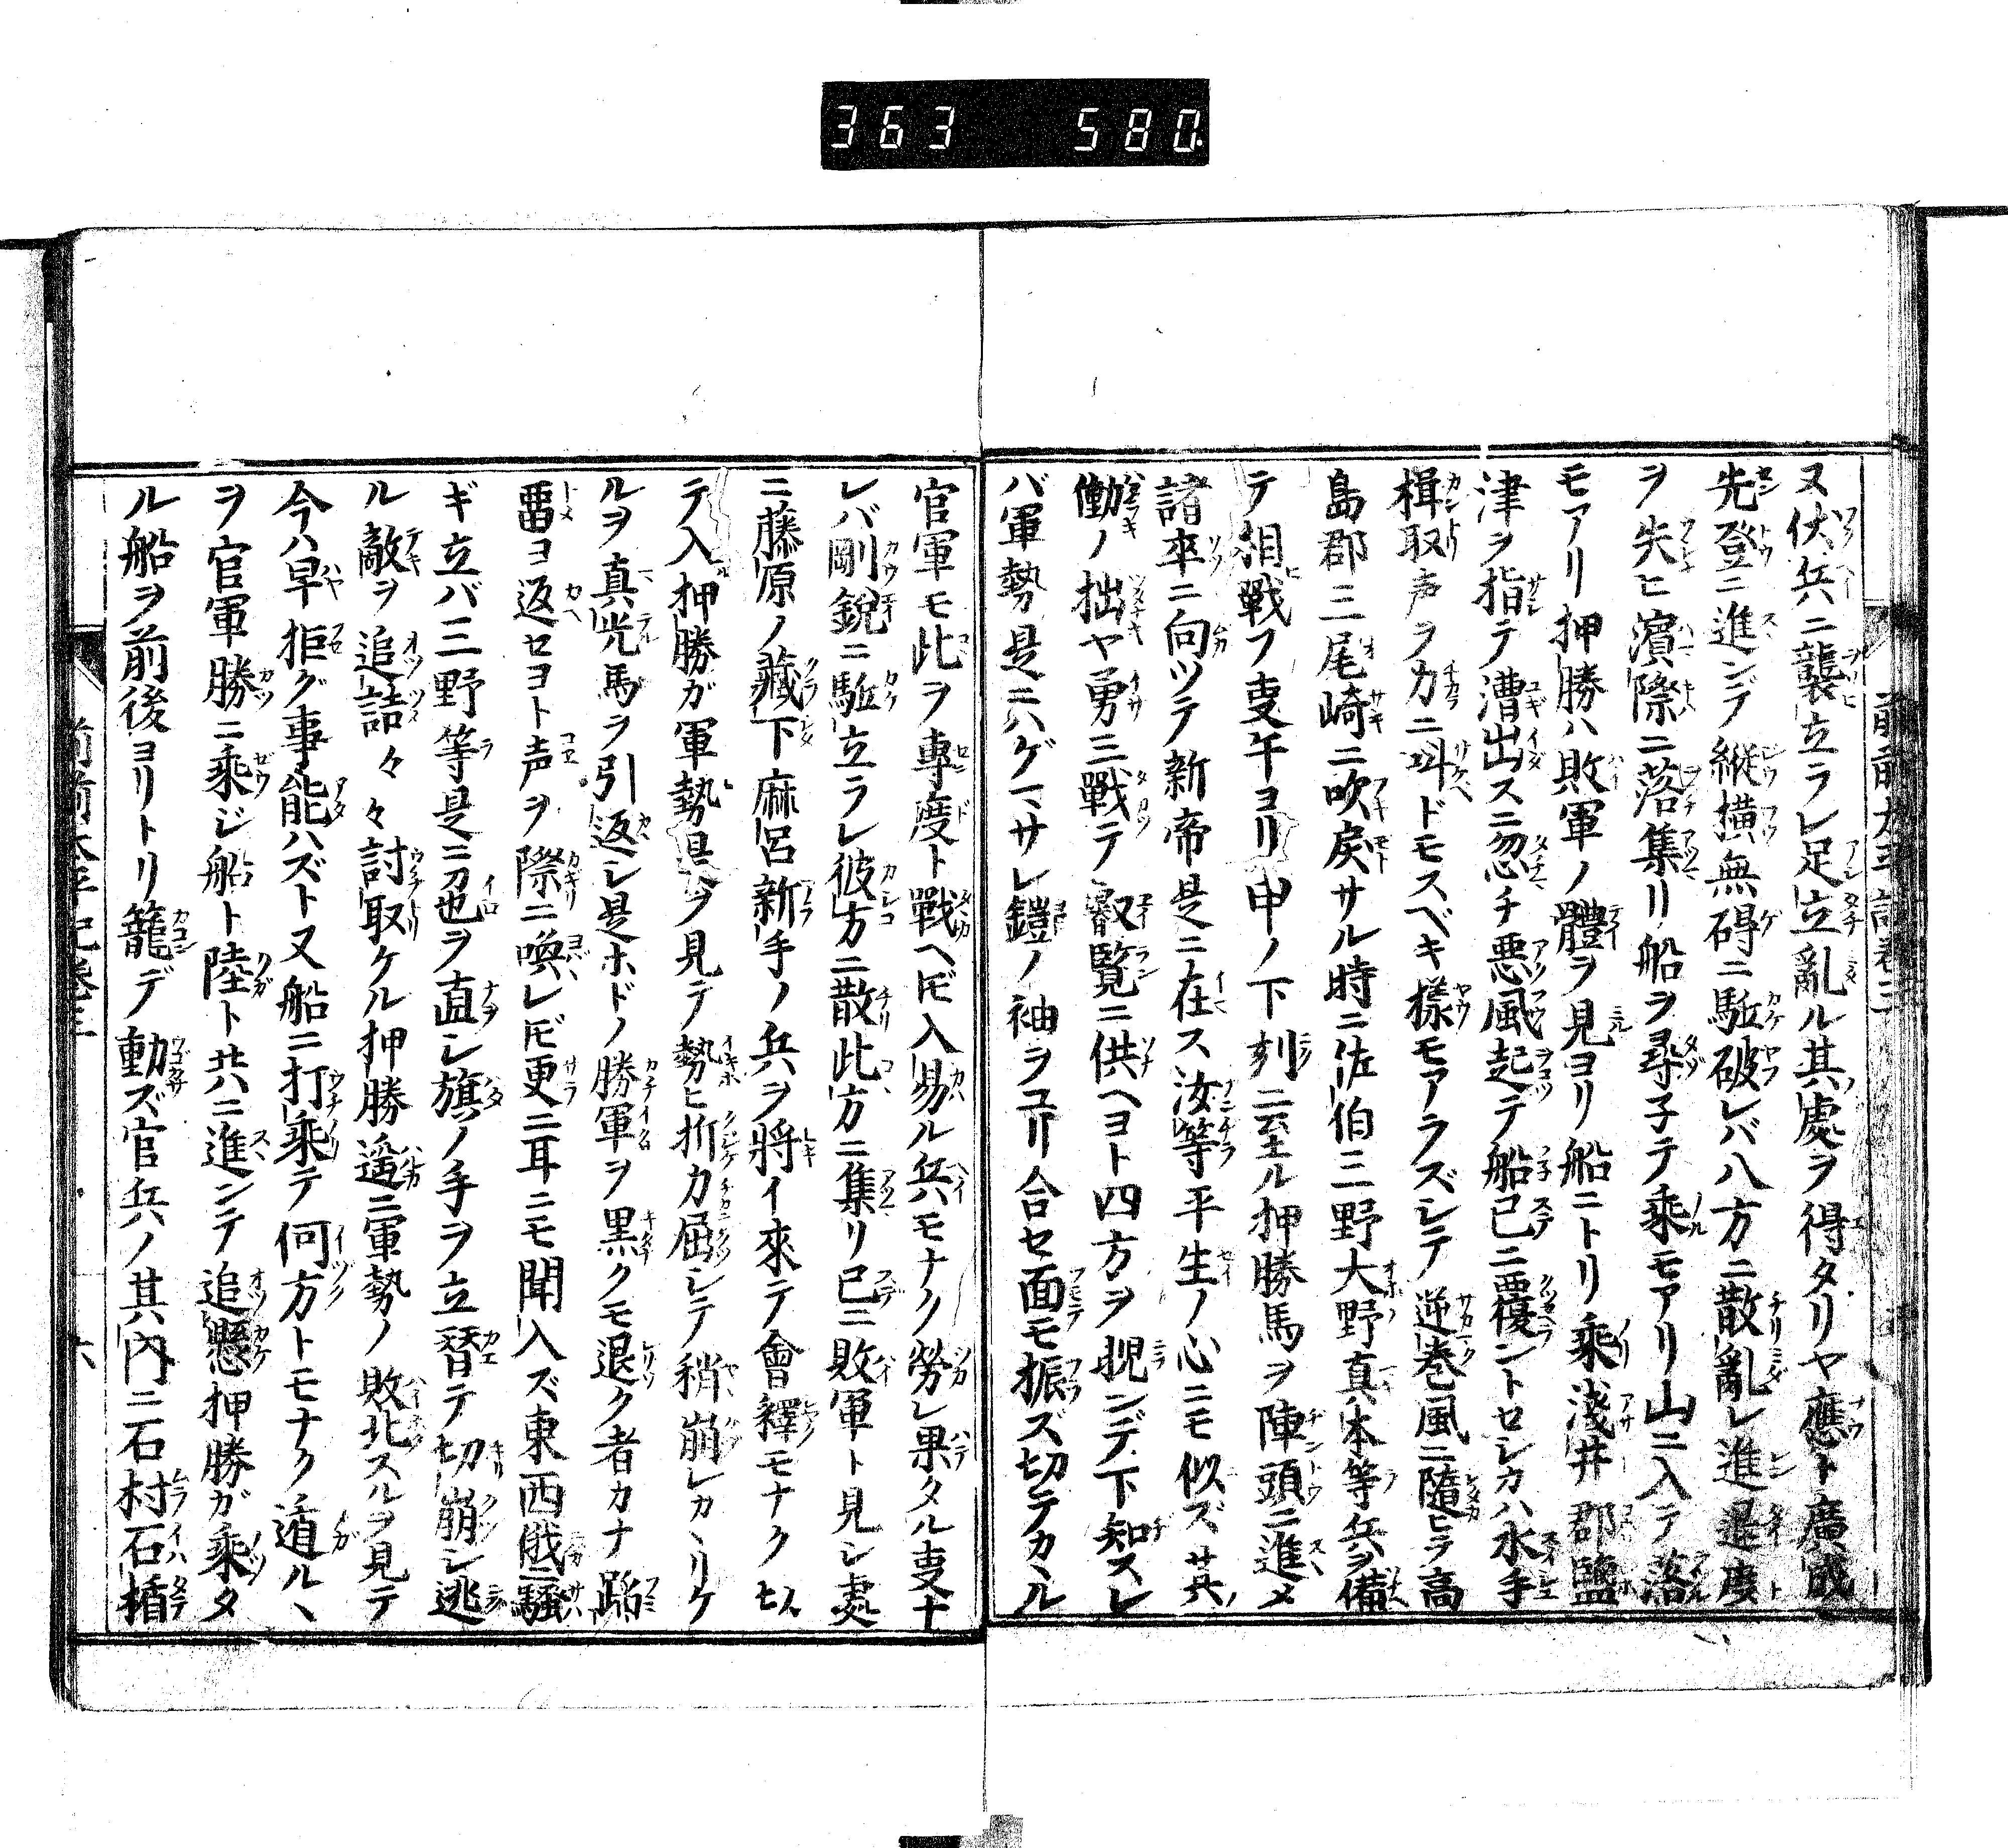 363 580
前前太平記巻三
ヌ伏兵ニ襲立ラレ足立亂ル其處ヲ得タリヤ應ト廣成
先登ニ進ンデ縦横無碍ニ駈破レバ八方ニ散亂レ進退度
ヲ失ヒ濱際ニ落集リ船ヲ尋子テ乘モアリ山ニ入テ落
モアリ押勝ハ敗軍ノ體ヲ見ヨリ船ニトリ乘淺井郡鹽
津ヲ指テ漕出スニ忽チ悪風起テ船已ニ覆ントセシカハ水手
楫取声ヲカニ叫ドモスベキ様モアラズシテ逆巻風ニ隨ヒラ高
島郡三尾崎ニ吹戻サル時ニ佐伯三野大野真本等兵ヲ備
テ相戰フ叓午ヨリ申ノ下刻ニ至ル押勝馬ヲ陣頭ニ進メ
諸卒ニ向ツテ新帝是ニ在ス汝等平生ノ心ニモ似ズ其
働ノ拙ヤ勇三戰テ叡覧ニ供ヘヨト四方ヲ睨ンデ下知スレ
バ軍勢是ニハゲマサレ鎧ノ袖ヲユリ合セ面モ振ズ切テカヽル
官軍モ此ヲ専度ト戰ヘ𪜈入易ル兵モナク勞レ果タル叓ナ
レバ剛鋭ニ駈立ラレ彼方ニ散此方ニ集リ已ニ敗軍ト見シ處
ニ藤原ノ藏下麻呂新手ノ兵ヲ將イ來テ會釋モナク切
テ入押勝ガ軍勢是ヲ見テ勢ヒ折力屈シテ稍崩レカヽリケ
ルヲ真光馬ヲ引返シ是ホドノ勝軍ヲ黒クモ退ク者カナ蹈
畱ヨ返セヨト声ヲ際ニ喚レ𪜈更ニ耳ニモ聞入ズ東西ニ騒
ギ立バ三野等是ニ力也ヲ直シ旗ノ手ヲ立替テ切崩シ逃
ル敵ヲ追詰々々討取ケル押勝遥ニ軍勢ノ敗北スルヲ見テ
今ハ早拒グ事能ハズト又船ニ打乘テ何方トモナク遁ルヽ
ヲ官軍勝ニ乘ジ船ト陸ト共ニ進ンテ追懸押勝ガ乘タ
ル船ヲ前後ヨリトリ籠デ動ズ官兵ノ其内ニ石村石楯
前前太平記巻三 六